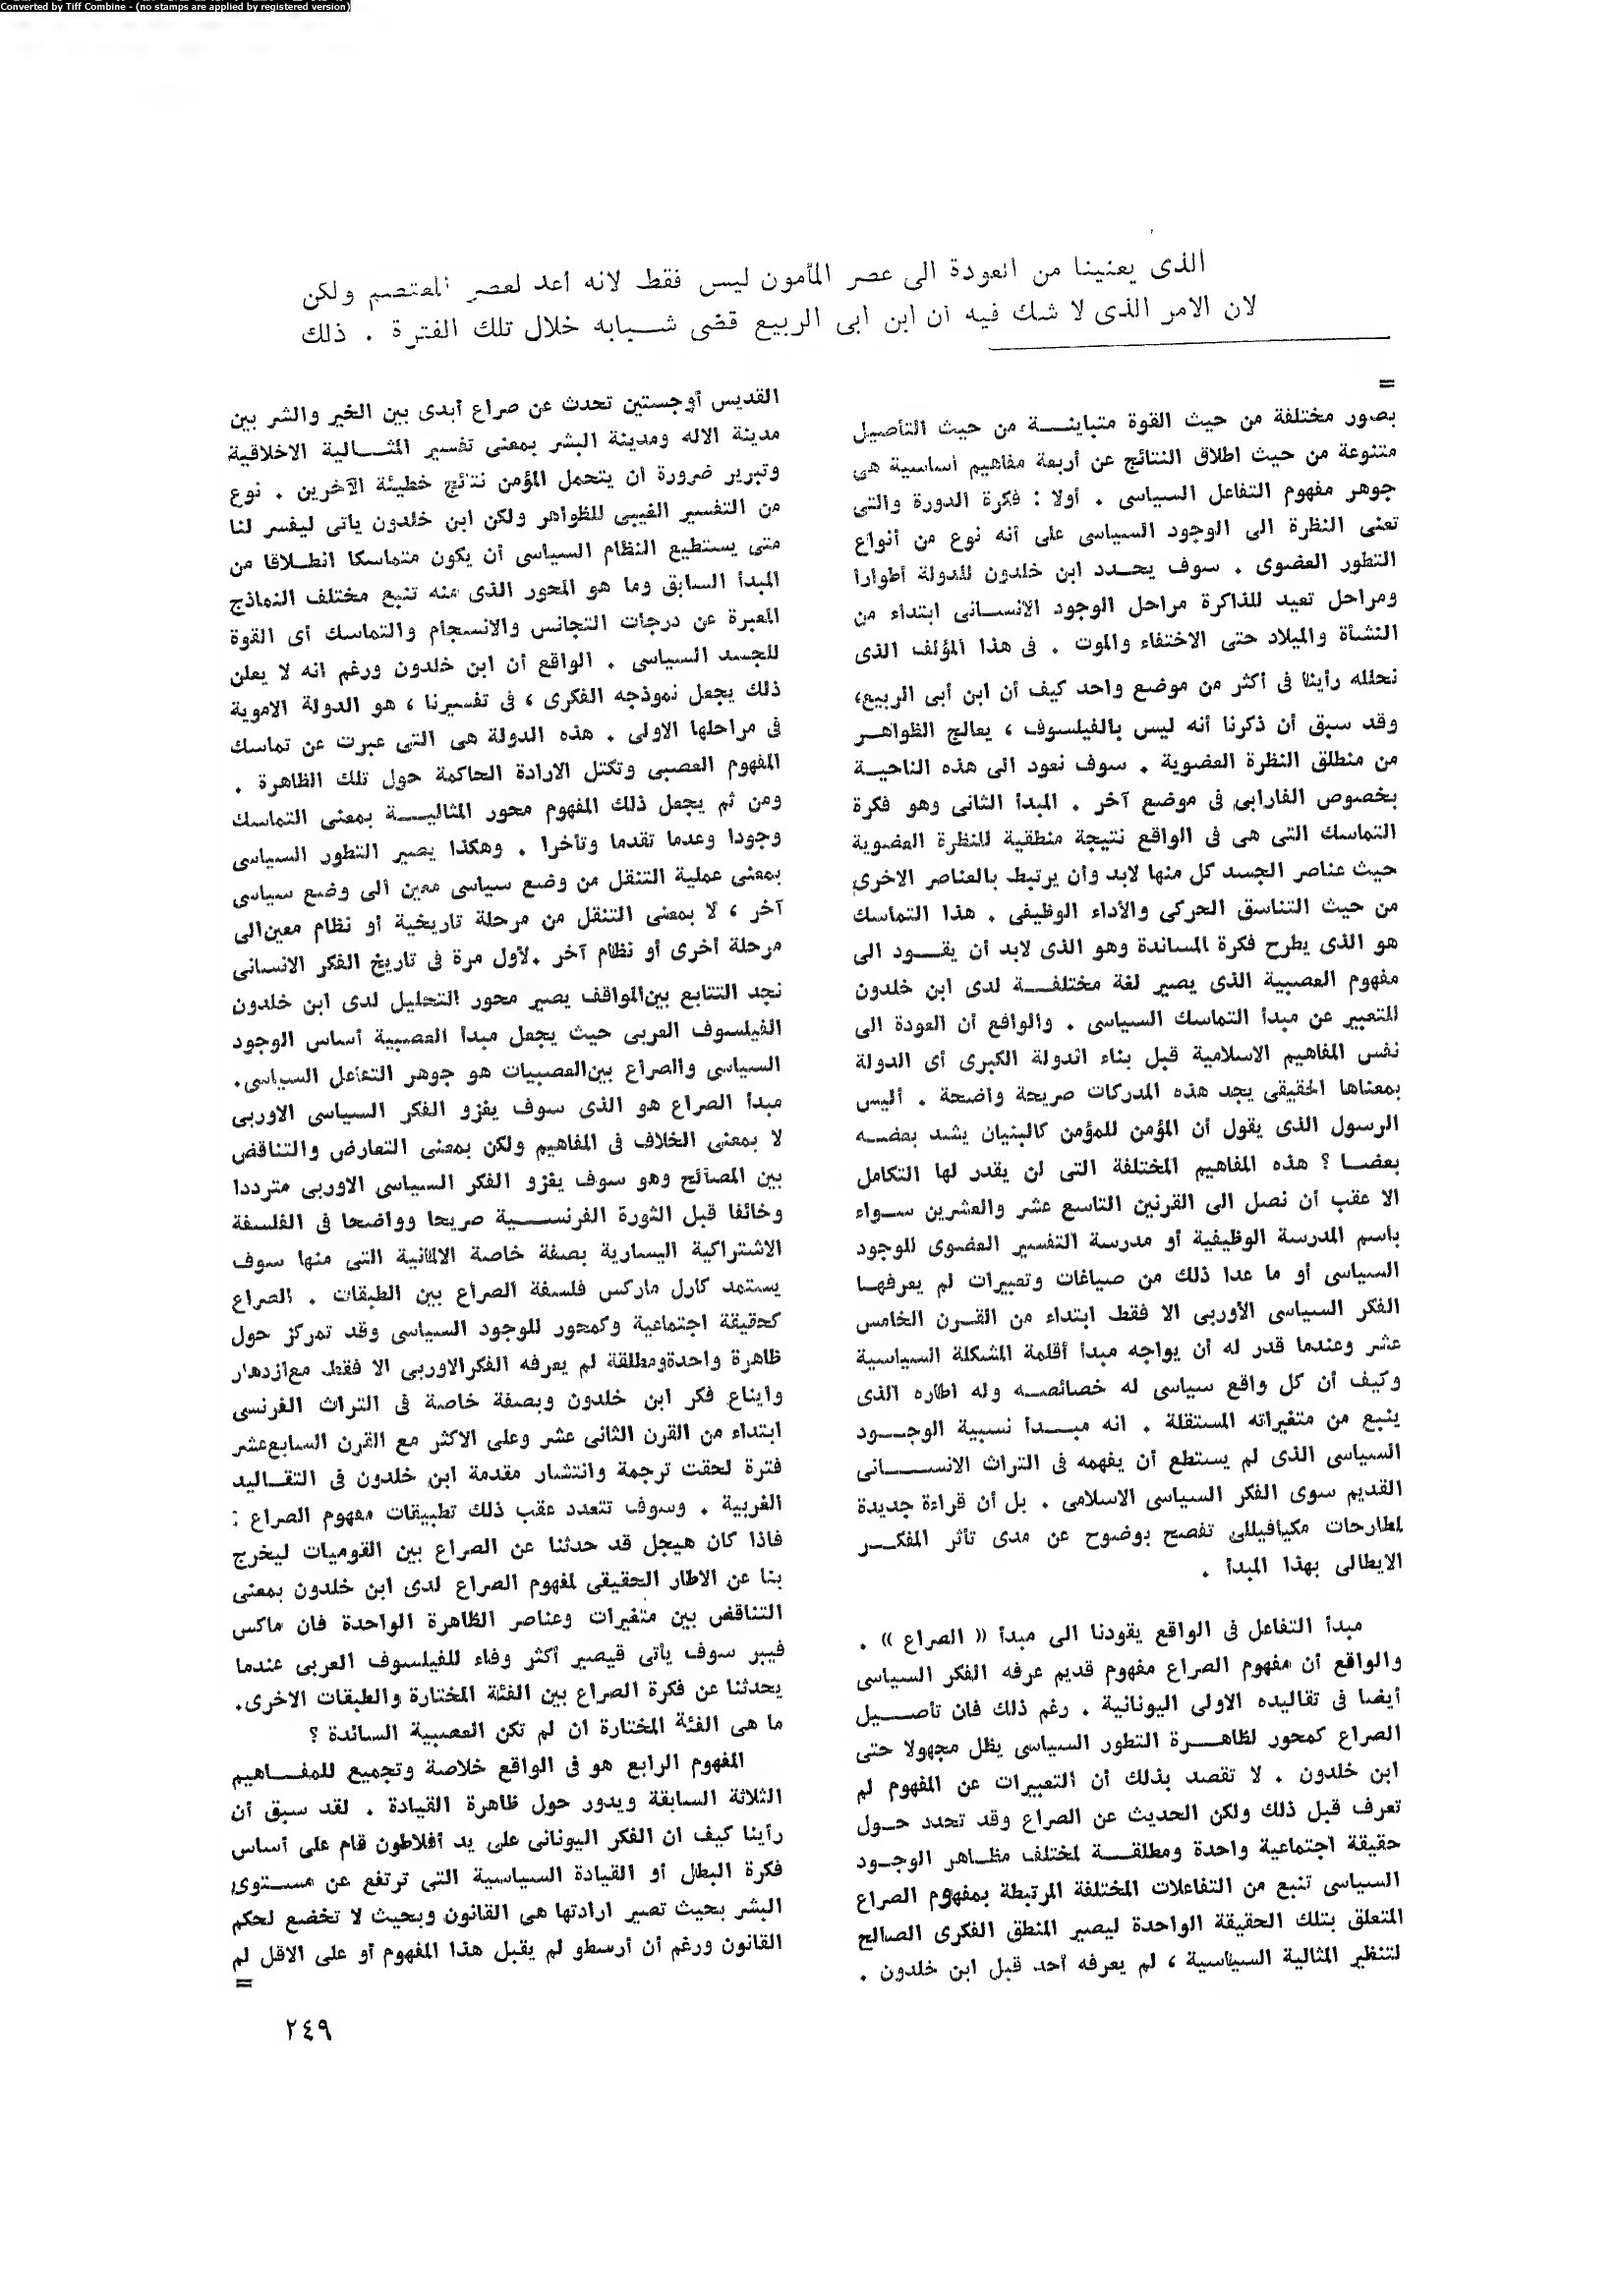 Converted by Tiff Combine - (no stamps are applied by registered version)
الذى يعنينا من العودة الى عصر المأمون ليس فقط لانه أعد لعصر المعتصم ولكن
لان الامر الذى لا شك فيه ان ابن ابى الربيع قضى شبابه خلال تلك الفترة . ذلك
=
بصور مختلفة من حيث القوة متباينة من حيث التأصيل
متنوعة من حيث اطلاق النتائج عن أربعة مفاهيم أساسية هى
جوهر مفهوم التفاعل السياسى . أولا : فكرة الدورة والتى
تعنى النظرة الى الوجود السياسى على أنه نوع من أنواع
التطور العضوى . سوف يحدد ابن خلدون للدولة أطوارا
ومراحل تعيد للذاكرة مراحل الوجود الانسانى ابتداء من
النشأة والميلاد حتى الاختفاء والموت . فى هذا المؤلف الذى
نحلله رأينا فى أكثر من موضع واحد كيف أن ابن أبى الربيع،
وقد سبق أن ذكرنا أنه ليس بالفيلسوف ، يعالج الظواهر
من منطلق النظرة العضوية . سوف نعود الى هذه الناحية
بخصوص الفارابى فى موضع آخر . المبدأ الثانى وهو فكرة
التماسك التى هى فى الواقع نتيجة منطقية للنظرة العضوية
حيث عناصر الجسد كل منها لابد وأن يرتبط بالعناصر الاخرى
من حيث التناسق الحركى والأداء الوظيفى . هذا التماسك
هو الذى يطرح فكرة المساندة وهو الذى لابد أن يقود الى
مفهوم العصبية الذى يصير لغة مختلفة لدى ابن خلدون
للتعبير عن مبدأ التماسك السياسى . والواقع أن العودة الى
نفس المفاهيم الاسلامية قبل بناء الدولة الكبرى أى الدولة
بمعناها الحقيقى يجد هذه المدركات صريحة واضحة . أليس
الرسول الذى يقول أن المؤمن للمؤمن كالبنيان يشد بعضه
بعضا ؟ هذه المفاهيم المختلفة التى لن يقدر لها التكامل
الا عقب أن نصل الى القرنين التاسع عشر والعشرين سواء
باسم المدرسة الوظيفية أو مدرسة التفسير العضوى للوجود
السياسى أو ما عدا ذلك من صياغات وتعبيرات لم يعرفها
الفكر السياسى الأوربى الا فقط ابتداء من القرن الخامس
عشر وعندما قدر له أن يواجه مبدأ أقلمة المشكلة السياسية
وكيف أن كل واقع سياسى له خصائصه وله اطاره الذى
ينبع من متغيراته المستقلة . انه مبدأ نسبية الوجود
السياسى الذى لم يستطع أن يفهمه فى التراث الانسانى
القديم سوى الفكر السياسى الاسلامى . بل أن قراءة جديدة
لمطارحات مكيافيللى تفصح بوضوح عن مدى تأثر المفكر
الايطالى بهذا المبدأ .
مبدأ التفاعل فى الواقع يقودنا الى مبدأ « الصراع » .
والواقع أن مفهوم الصراع مفهوم قديم عرفه الفكر السياسى
أيضا فى تقاليده الاولى اليونانية . رغم ذلك فان تأصيل
الصراع كمحور لظاهرة التطور السياسى يظل مجهولا حتى
ابن خلدون . لا تقصد بذلك أن التعبيرات عن المفهوم لم
تعرف قبل ذلك ولكن الحديث عن الصراع وقد تحدد حول
حقيقة اجتماعية واحدة ومطلقة لمختلف مظاهر الوجود
السياسى تنبع من التفاعلات المختلفة المرتبطة بمفهوم الصراع
المتعلق بتلك الحقيقة الواحدة ليصير المنطق الفكرى الصالح
لتنظير المثالية السياسية ، لم يعرفه أحد قبل ابن خلدون .
القديس أوجستين تحدث عن صراع أبدى بين الخير والشر بين
مدينة الاله ومدينة البشر بمعنى تفسير المثالية الاخلاقية
وتبرير ضرورة ان يتحمل المؤمن نتائج خطيئة الآخرين . نوع
من التفسير الغيبى للظواهر ولكن ابن خلدون يأتى ليفسر لنا
متى يستطيع النظام السياسى أن يكون متماسكا انطلاقا من
المبدأ السابق وما هو المحور الذى منه تنبع مختلف النماذج
المعبرة عن درجات التجانس والانسجام والتماسك أى القوة
للجسد السياسى . الواقع أن ابن خلدون ورغم انه لا يعلن
ذلك يجعل نموذجه الفكرى ، فى تفسيرنا ، هو الدولة الاموية
فى مراحلها الاولى . هذه الدولة هى التى عبرت عن تماسك
المفهوم العصبى وتكتل الارادة الحاكمة حول تلك الظاهرة .
ومن ثم يجعل ذلك المفهوم محور المثالية بمعنى التماسك
وجودا وعدما تقدما وتأخرا . وهكذا يصير التطور السياسى
بمعنى عملية التنقل من وضع سياسى معين الى وضع سياسى
آخر ، لا بمعنى التنقل من مرحلة تاريخية أو نظام معين الى
مرحلة أخرى أو نظام آخر .لأول مرة فى تاريخ الفكر الانسانى
نجد التتابع بين المواقف يصير محور التحليل لدى ابن خلدون
الفيلسوف العربى حيث يجعل مبدأ العصبية أساس الوجود
السياسى والصراع بين العصبيات هو جوهر التفاعل السياسى.
مبدأ الصراع هو الذى سوف يغزو الفكر السياسى الاوربى
لا بمعنى الخلاف فى المفاهيم ولكن بمعنى التعارض والتناقض
بين المصالح وهو سوف يغزو الفكر السياسى الاوربى مترددا
وخائفا قبل الثورة الفرنسية صريحا وواضحا فى الفلسفة
الاشتراكية اليسارية بصفة خاصة الالمانية التى منها سوف
يستمد كارل ماركس فلسفة الصراع بين الطبقات . الصراع
كحقيقة اجتماعية وكمحور للوجود السياسى وقد تمركز حول
ظاهرة واحدة ومطلقة لم يعرفه الفكر الاوربى الا فقط مع ازدهار
وايناع فكر ابن خلدون وبصفة خاصة فى التراث الفرنسى
ابتداء من القرن الثانى عشر وعلى الاكثر مع القرن السابع عشر
فترة لحقت ترجمة وانتشار مقدمة ابن خلدون فى التقاليد
الغربية . وسوف تتعدد عقب ذلك تطبيقات مفهوم الصراع :
فاذا كان هيجل قد حدثنا عن الصراع بين القوميات ليخرج
بنا عن الاطار الحقيقى لمفهوم الصراع لدى ابن خلدون بمعنى
التناقض بين متغيرات وعناصر الظاهرة الواحدة فان ماكس
فيبر سوف يأتى فيصير أكثر وفاء للفيلسوف العربى عندما
يحدثنا عن فكرة الصراع بين الفئة المختارة والطبقات الاخرى.
ما هى الفئة المختارة ان لم تكن العصبية السائدة ؟
المفهوم الرابع هو فى الواقع خلاصة وتجميع للمفاهيم
الثلاثة السابقة ويدور حول ظاهرة القيادة . لقد سبق أن
رأينا كيف ان الفكر اليونانى على يد أفلاطون قام على أساس
فكرة البطل أو القيادة السياسية التى ترتفع عن مستوى
البشر بحيث تصير ارادتها هى القانون وبحيث لا تخضع لحكم
القانون ورغم أن أرسطو لم يقبل هذا المفهوم أو على الاقل لم
=
٢٤٩